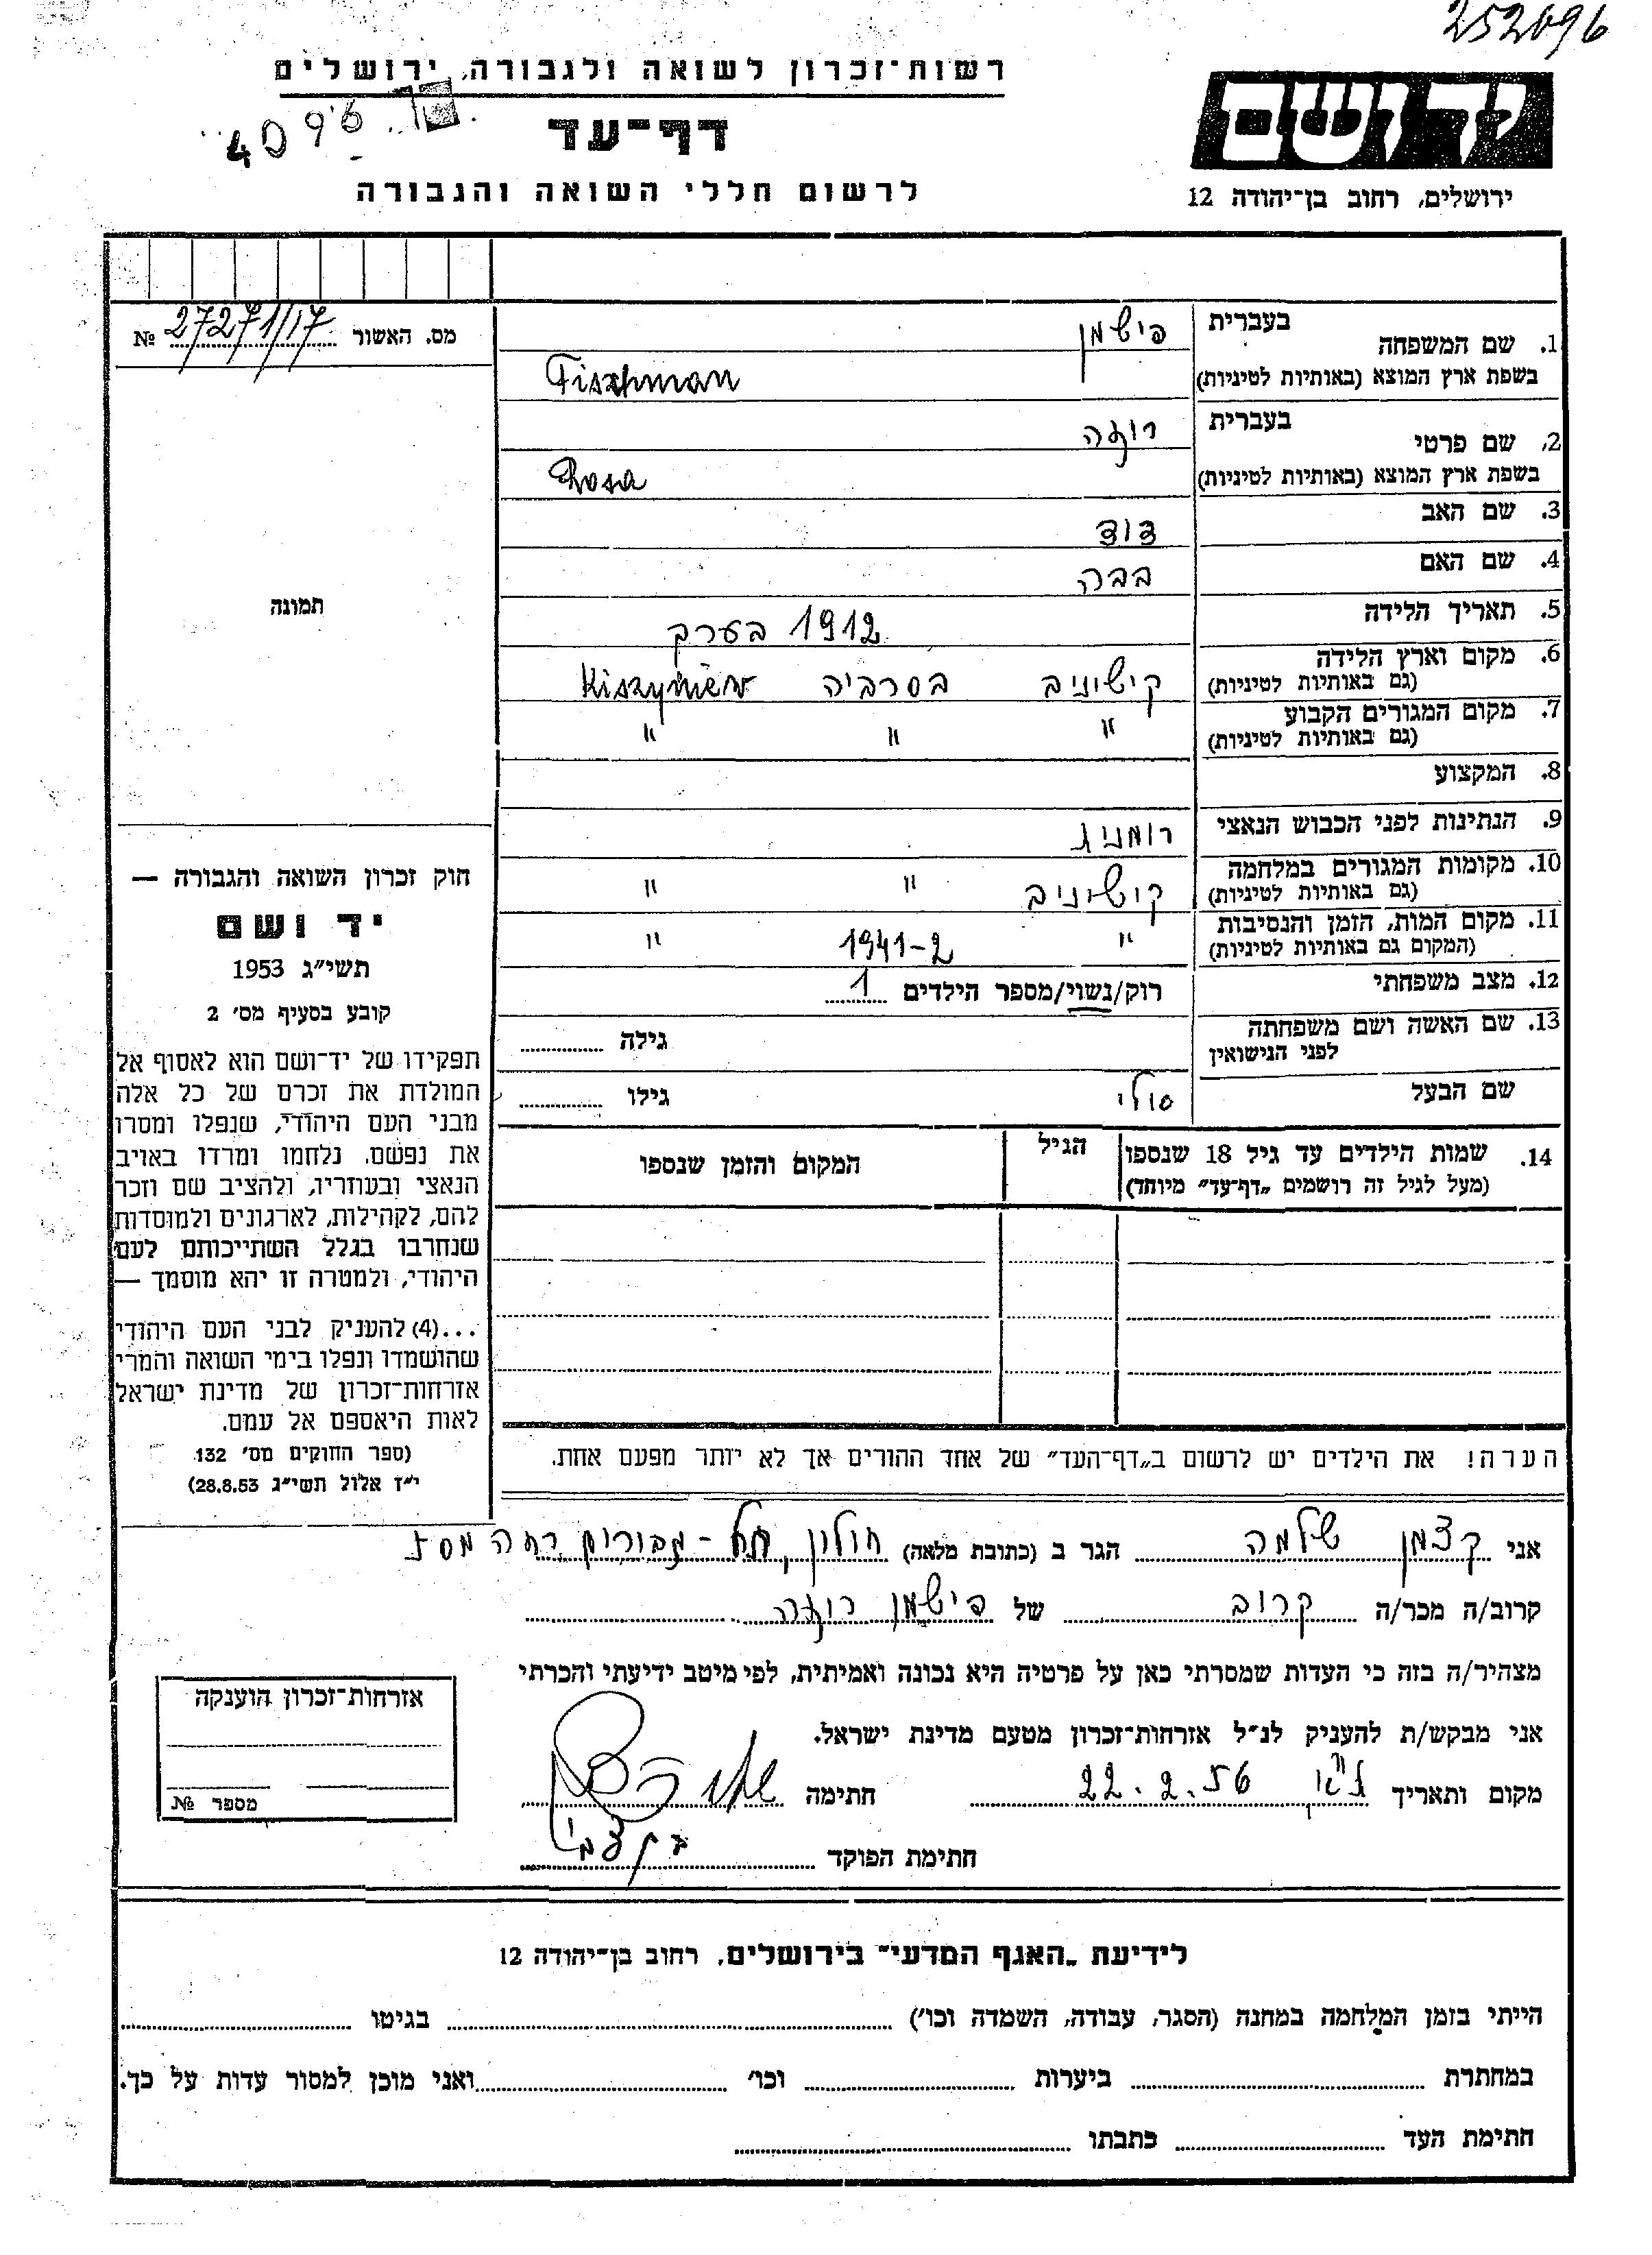 252096
רשות־זכרון לשואה ולגבורה, ירושלים
4096
דף־עד
לרשום חללי השואה והגבורה
יד ושם
ירושלים, רחוב בן־יהודה 12
מס. האשור № 27271/17
תמונה
1. שם המשפחה
בעברית פישמן
בשפת ארץ המוצא (באותיות לטיניות) Fiszhman
2. שם פרטי
בעברית רוזה
בשפת ארץ המוצא (באותיות לטיניות) Rosa
3. שם האב דוד
4. שם האם בבה
5. תאריך הלידה 1912 בערך
6. מקום וארץ הלידה (גם באותיות לטיניות) קישינוב בסרביה Kiszyniew
7. מקום המגורים הקבוע (גם באותיות לטיניות) " " "
8. המקצוע
9. הנתינות לפני הכבוש הנאצי רומנית
10. מקומות המגורים במלחמה (גם באותיות לטיניות) קישינוב " "
11. מקום המות, הזמן והנסיבות (המקום גם באותיות לטיניות) " 1941-2 "
12. מצב משפחתי רוק/נשוי/מספר הילדים 1
13. שם האשה ושם משפחתה לפני הנישואין גילה
שם הבעל סולי גילו
14. שמות הילדים עד גיל 18 שנספו (מעל לגיל זה רושמים „דף־עד" מיוחד) הגיל המקום והזמן שנספו
הערה! את הילדים יש לרשום ב„דף־העד" של אחד ההורים אך לא יותר מפעם אחת.
חוק זכרון השואה והגבורה —
יד ושם
תשי״ג 1953
קובע בסעיף מס׳ 2
תפקידו של יד־ושם הוא לאסוף אל
המולדת את זכרם של כל אלה
מבני העם היהודי, שנפלו ומסרו
את נפשם, נלחמו ומרדו באויב
הנאצי ובעוזריו, ולהציב שם וזכר
להם, לקהילות, לארגונים ולמוסדות
שנחרבו בגלל השתייכותם לעם
היהודי, ולמטרה זו יהא מוסמך —
...(4) להעניק לבני העם היהודי
שהושמדו ונפלו בימי השואה והמרי
אזרחות־זכרון של מדינת ישראל
לאות היאספם אל עמם.
(ספר החוקים מס׳ 132
י״ז אלול תשי״ג 28.8.53)
אני קצמן שלמה הגר ב (כתובת מלאה) חולון, תל-גבורים
קרוב/ה מכר/ה קרוב של פישמן רוזה
מצהיר/ה בזה כי העדות שמסרתי כאן על פרטיה היא נכונה ואמיתית, לפי מיטב ידיעתי והכרתי
אני מבקש/ת להעניק לנ״ל אזרחות־זכרון מטעם מדינת ישראל.
מקום ותאריך 22.2.56 חתימה
חתימת הפוקד
אזרחות־זכרון הוענקה
מספר №
לידיעת „האגף המדעי" בירושלים, רחוב בן־יהודה 12
הייתי בזמן המלחמה במחנה (הסגר, עבודה, השמדה וכו׳) בגיטו
במחתרת ביערות וכו׳ ואני מוכן למסור עדות על כך.
חתימת העד כתבתו